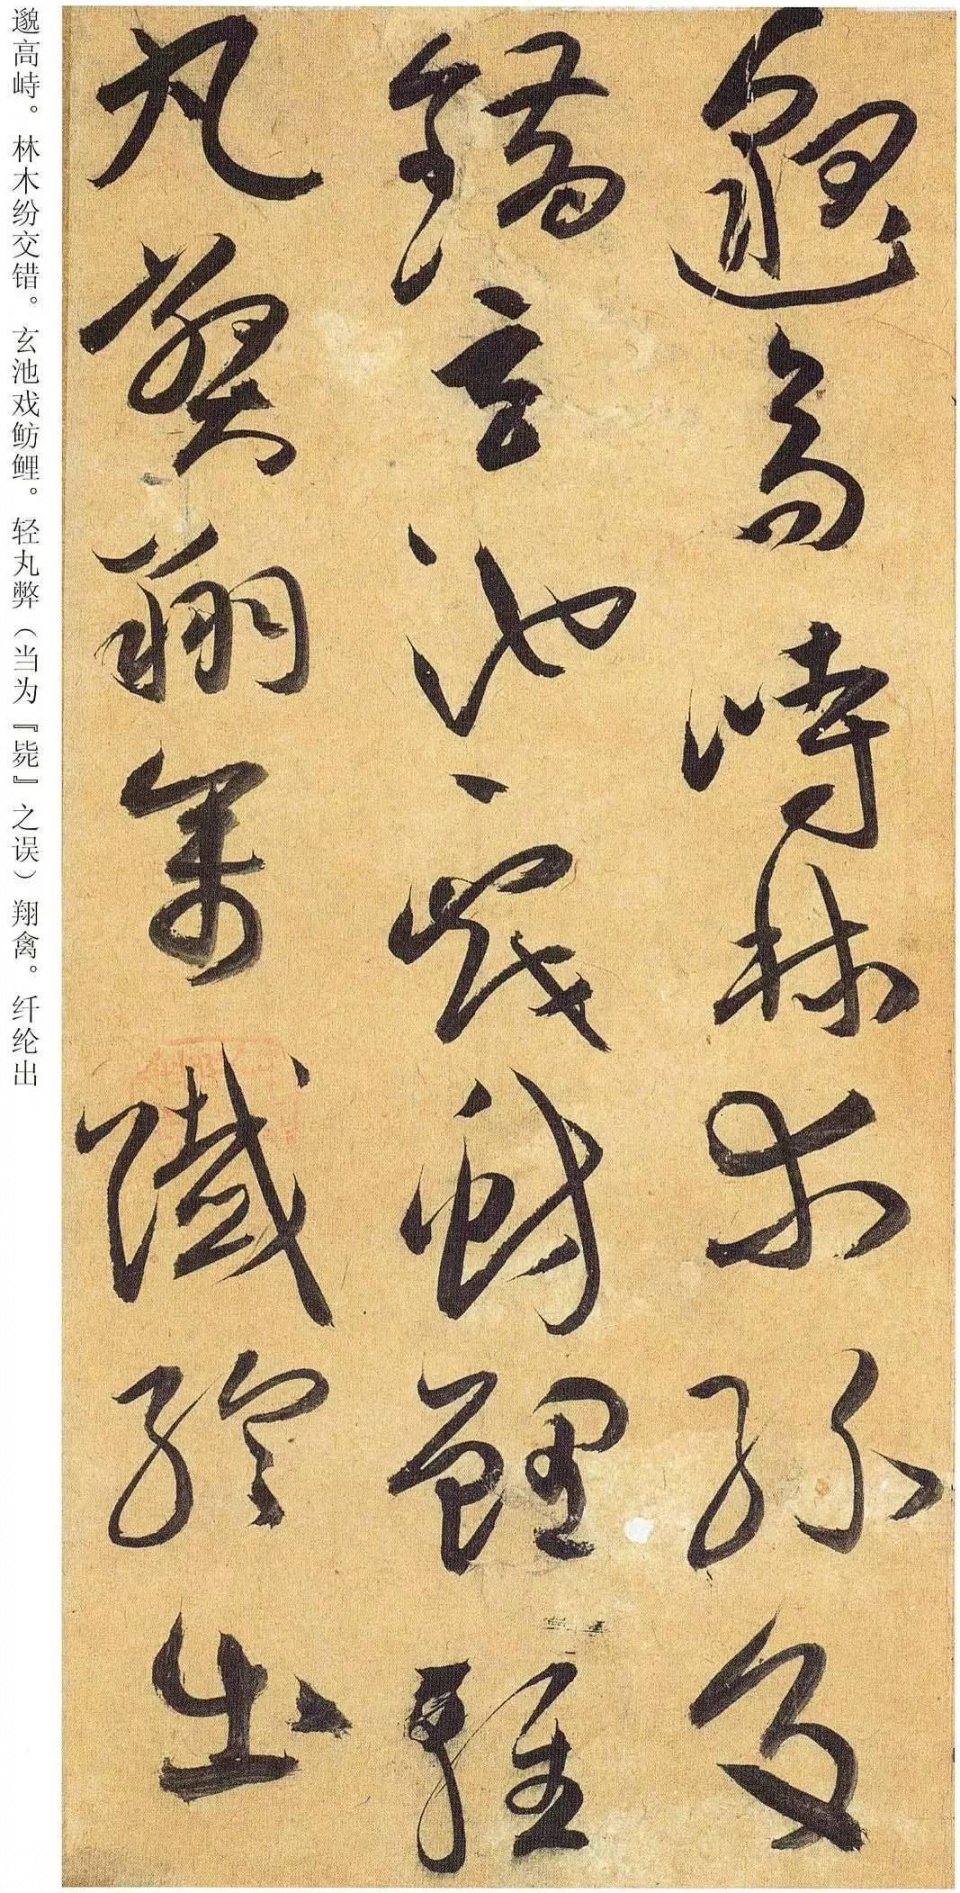 邈高峙林木紛交
錯玄池戲魴鯉輕
丸弊翔禽纖綸出
邈高峙。林木纷交错。玄池戏鲂鲤。轻丸弊（当为『毙』之误）翔禽。纤纶出